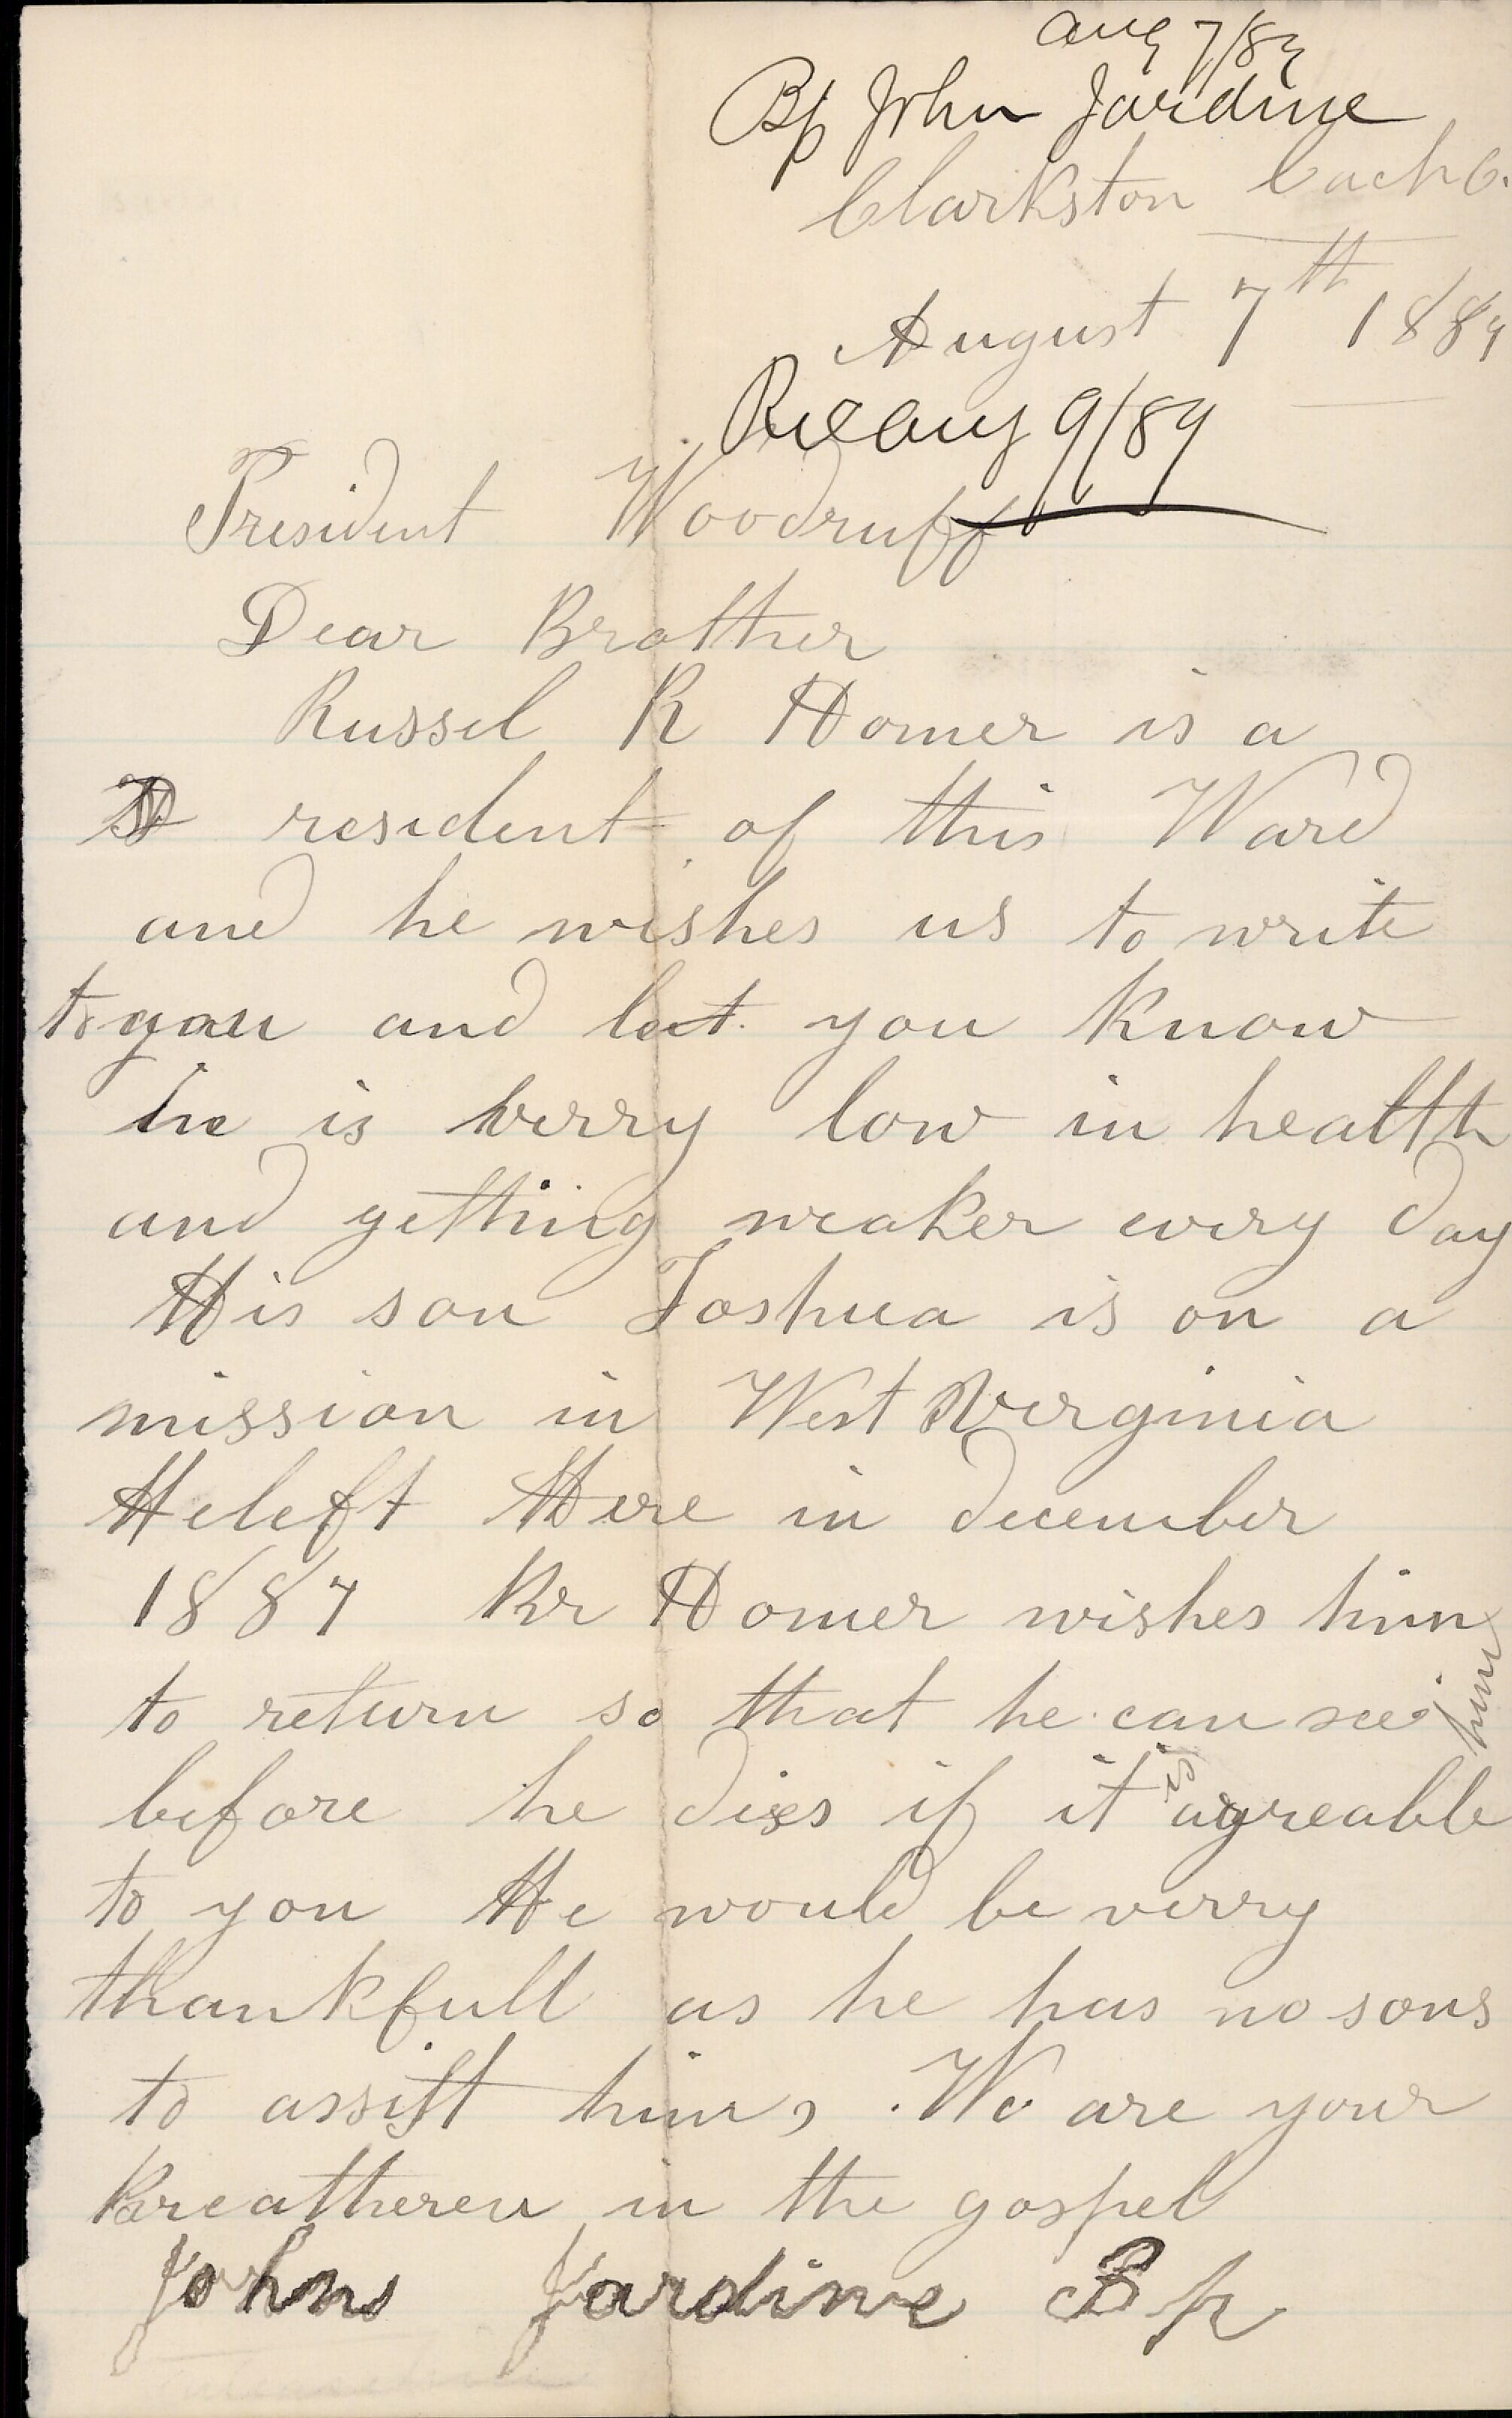 Aug 7/89
Bp John Jardine
Clarkston Cach C.
August 7th 1889
Rec Aug 9/89
President Woodruff
Dear Brother
Russel R Homer is a
resident of this Ward
and he wishes us to write
to you and let you know
he is verry low in health
and getting weaker every day
His son Joshua is on a
mission in West Virginia
He left Here in december
1887 Br Homer wishes him
to return so that he can see him
before he dies if it is agreable
to you He would be verry
thankfull as he has no sons
to assist him, We are your
Breatheren in the gospel
John Jardine Bp